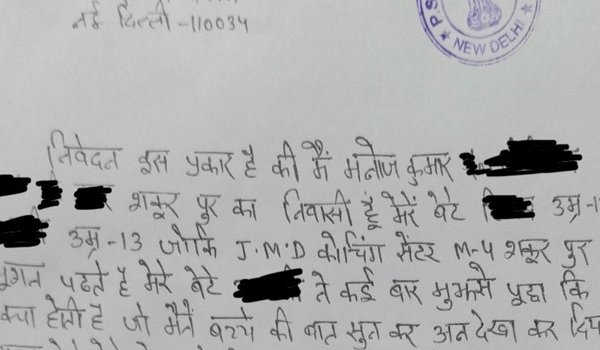 नई दिल्ली -110034
P.S
NEW DELHI
निवेदन इस प्रकार है की मैं मनोज कुमार
शकूर पुर का निवासी हूँ मेरे बेटे उम्र-1
उम्र-13 जोकि J.M.D कोचिंग सेंटर M-4 शकूर पुर
पढते है मेरे बेटे ने कई बार मुझसे पूछा कि
क्या होती है जो मैंने बच्चे की बात सुन कर अनदेखा कर दिय